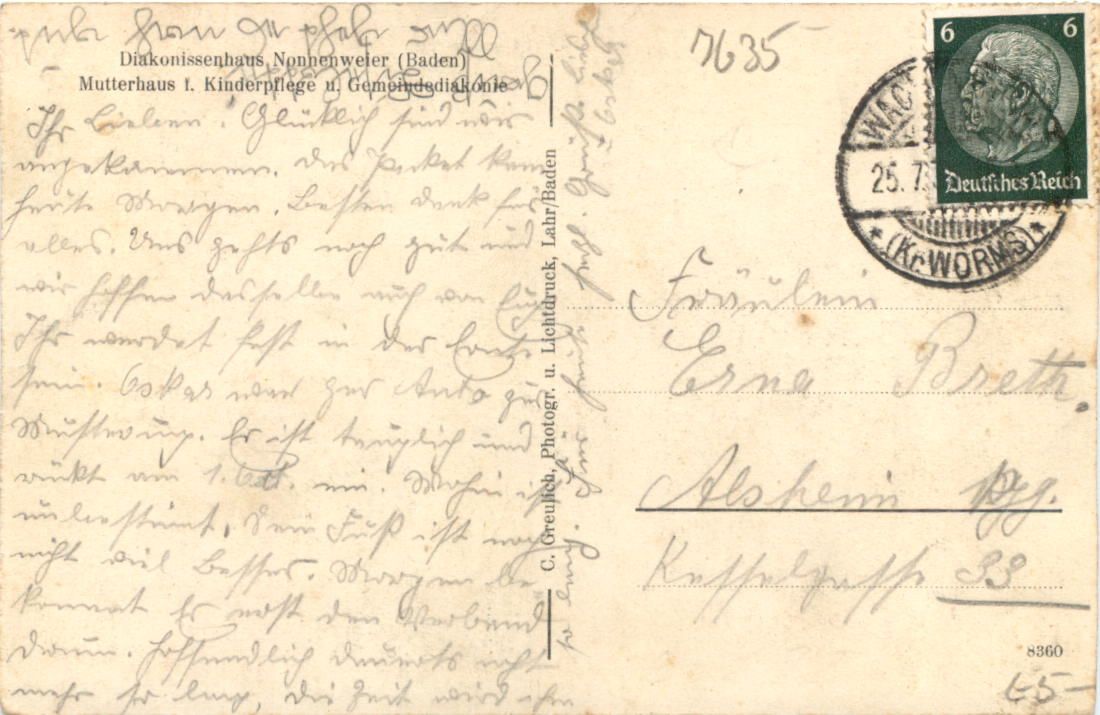 Diakonissenhaus Nonnenweier (Baden)
Mutterhaus f. Kinderpflege u. Gemeindediakonie
Ihr Lieben! Glücklich sind wir
angekommen. Das Packet kam
heute Morgen. Besten Dank für
alles. Uns gehts noch gut und
wir hoffen dasselbe auch von Euch
Ihr werdet fest in der Ernte
sein. Oskar war zur
Musterung. Er ist tauglich und
rückt am 1. Okt. ein. Wohin ist
unbestimmt. Sein Fuß ist noch
nicht viel besser. Morgen be
kommt Er erst den Verband
drum. Hoffendlich dauerts nicht
mehr so lang, die Zeit wird ihm
so lang.
C. Greulich, Photogr. u. Lichtdruck, Lahr/Baden
7635
6 6
Deutsches Reich
25.7.
(Kr. WORMS)
Fräulein
Erna Breth.
Alsheim
Kesselgasse 33
8360
5-